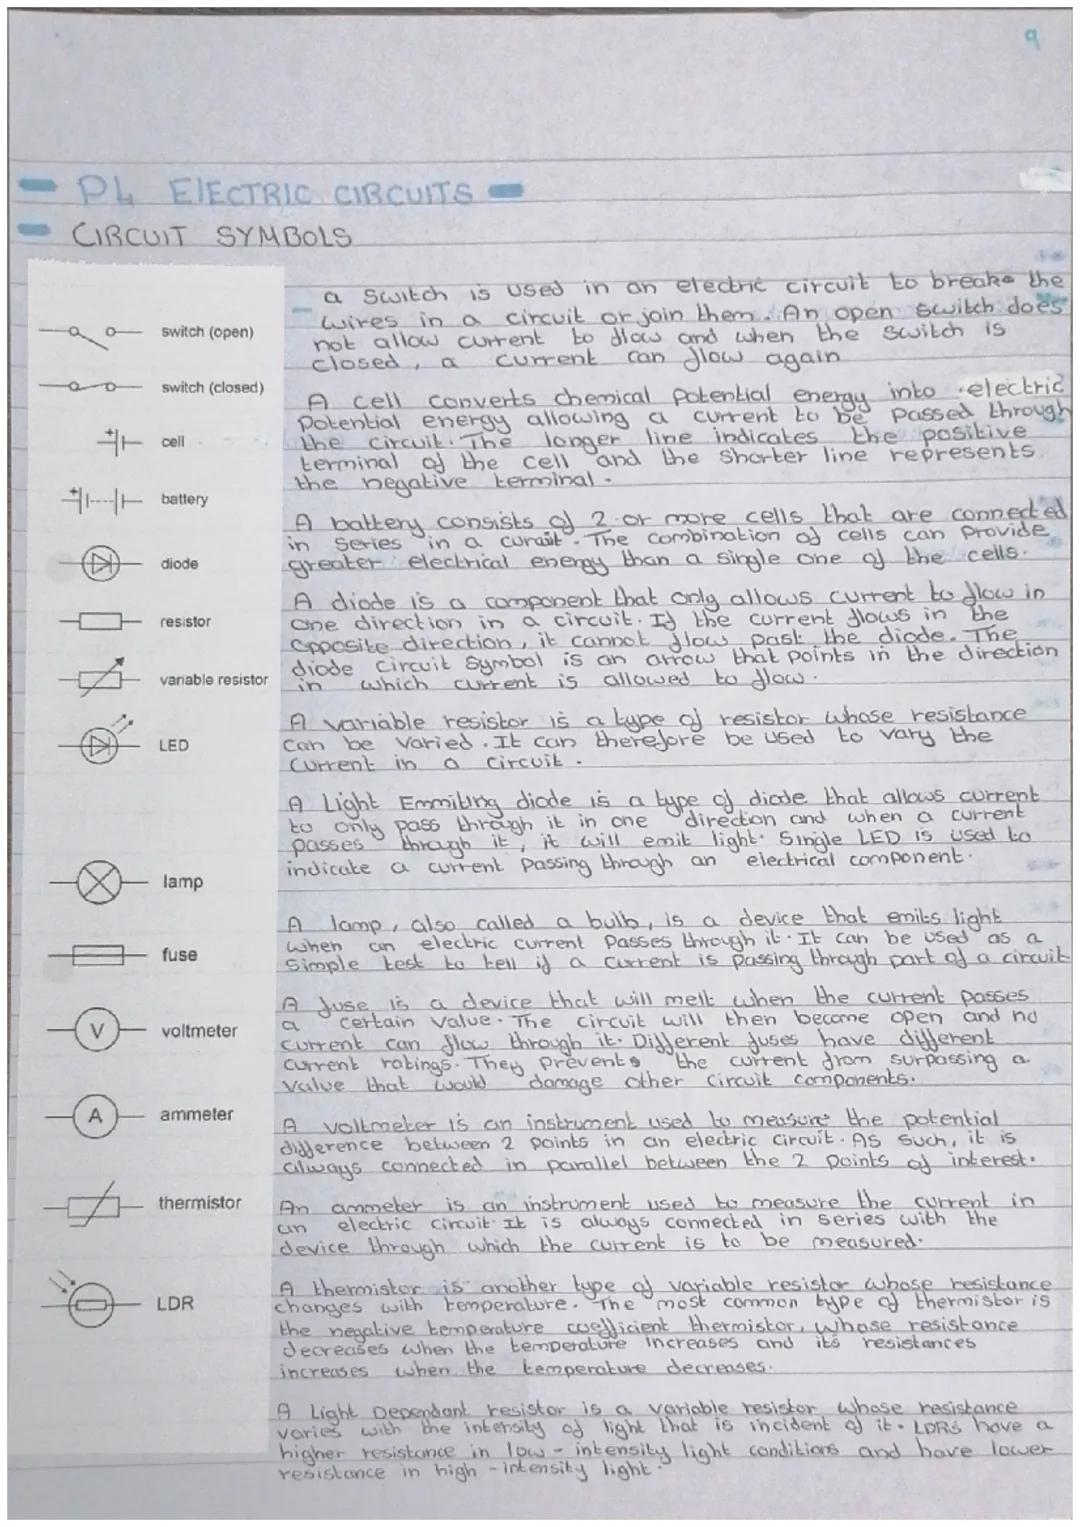 9
P4 ElECTRIC CIRCUITS
CIRCUIT SYMBOLS
a switch is used in an electric circuit to breake the
wires in a circuit or join them. An open switch does
not allow current to flow and when the switch is
closed, a current can flow again
switch (open)
switch (closed)
A cell converts chemical potential energy into electric
Potential energy allowing a current to be passed through
the circuit. The longer line indicates the positive
terminal of the cell and the shorter line represents
the negative terminal.
cell
battery
A battery consists of 2 or more cells that are connected
in series in a . The combination of cells can provide
greater electrical energy than a single one of the cells.
diode
A diode is a component that only allows current to flow in
one direction in a circuit. If the current flows in the
opposite direction, it cannot flow past the diode. The
diode circuit symbol is an arrow that points in the direction
in which current is allowed to flow.
resistor
variable resistor
A variable resistor is a type of resistor whose resistance
can be varied. It can therefore be used to vary the
current in a circuit.
LED
A Light Emmiting diode is a type of diode that allows current
to only pass through it in one direction and when a current
passes through it, it will emit light. Single LED is used to
indicate a current passing through an electrical component.
lamp
A lamp, also called a bulb, is a device that emits light
when an electric current passes through it. It can be used as a
simple test to tell if a current is passing through part of a circuit
fuse
A fuse is a device that will melt when the current passes
a certain value. The circuit will then become open and no
current can flow through it. Different fuses have different
current ratings. They prevents the current from surpassing a
value that would damage other circuit components.
V voltmeter
A voltmeter is an instrument used to measure the potential
difference between 2 points in an electric circuit. As such, it is
always connected in parallel between the 2 points of interest.
A ammeter
An ammeter is an instrument used to measure the current in
an electric circuit. It is always connected in series with the
device through which the current is to be measured.
thermistor
A thermistor is another type of variable resistor whose resistance
changes with temperature. The most common type of thermistor is
the negative temperature coefficient thermistor, whose resistance
decreases when the temperature increases and its resistances
increases when the temperature decreases.
LDR
A Light Dependant resistor is a variable resistor whose resistance
varies with the intensity of light that is incident of it. LDRs have a
higher resistance in low-intensity light conditions and have lower
resistance in high-intensity light.